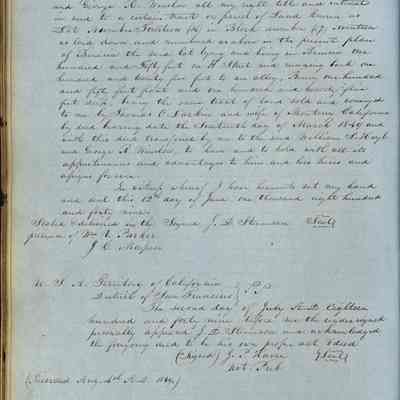 and George A. Winslow all my right title and interest
in and to a certain tract or parcel of Land known as
Lot Number Fourteen (14) in Block number (17) Nineteen
as laid down and numbered as above in the present plan
of Benicia the said Lot lying and being in Benicia one
hundred and fifty feet on H Street and running back one
hundred and twenty five feet to an alley, Being one hundred
and fifty feet front and one hundred and twenty five
feet deep, being the same tract of land sold and conveyed
to me by Thomas O. Larkin and wife of Monterey California
by deed bearing date the day of March 1849 and
with this deed transferred by me to the said William
and George A. Winslow to have and to hold with all its
appurtenances and advantages to him and his heirs and
assigns forever.
In witness whereof I have hereunto set my hand
and seal this 12th day of June one thousand eight hundred
and forty nine.
Sealed & delivered in the Signed J. D. Stevenson (Seal)
presence of Wm. A. Parker
J. C.
U. S. A. Territory of California
District of San Francisco } S.S.
The second day of July Eighteen
hundred and forty nine before me the undersigned
personally appeared J. D. Stevenson and acknowledged
the foregoing deed to be his own proper act & deed
(Signed) (Seal)
Not. Pub.
(Received Aug. 4th A.D. 1849)